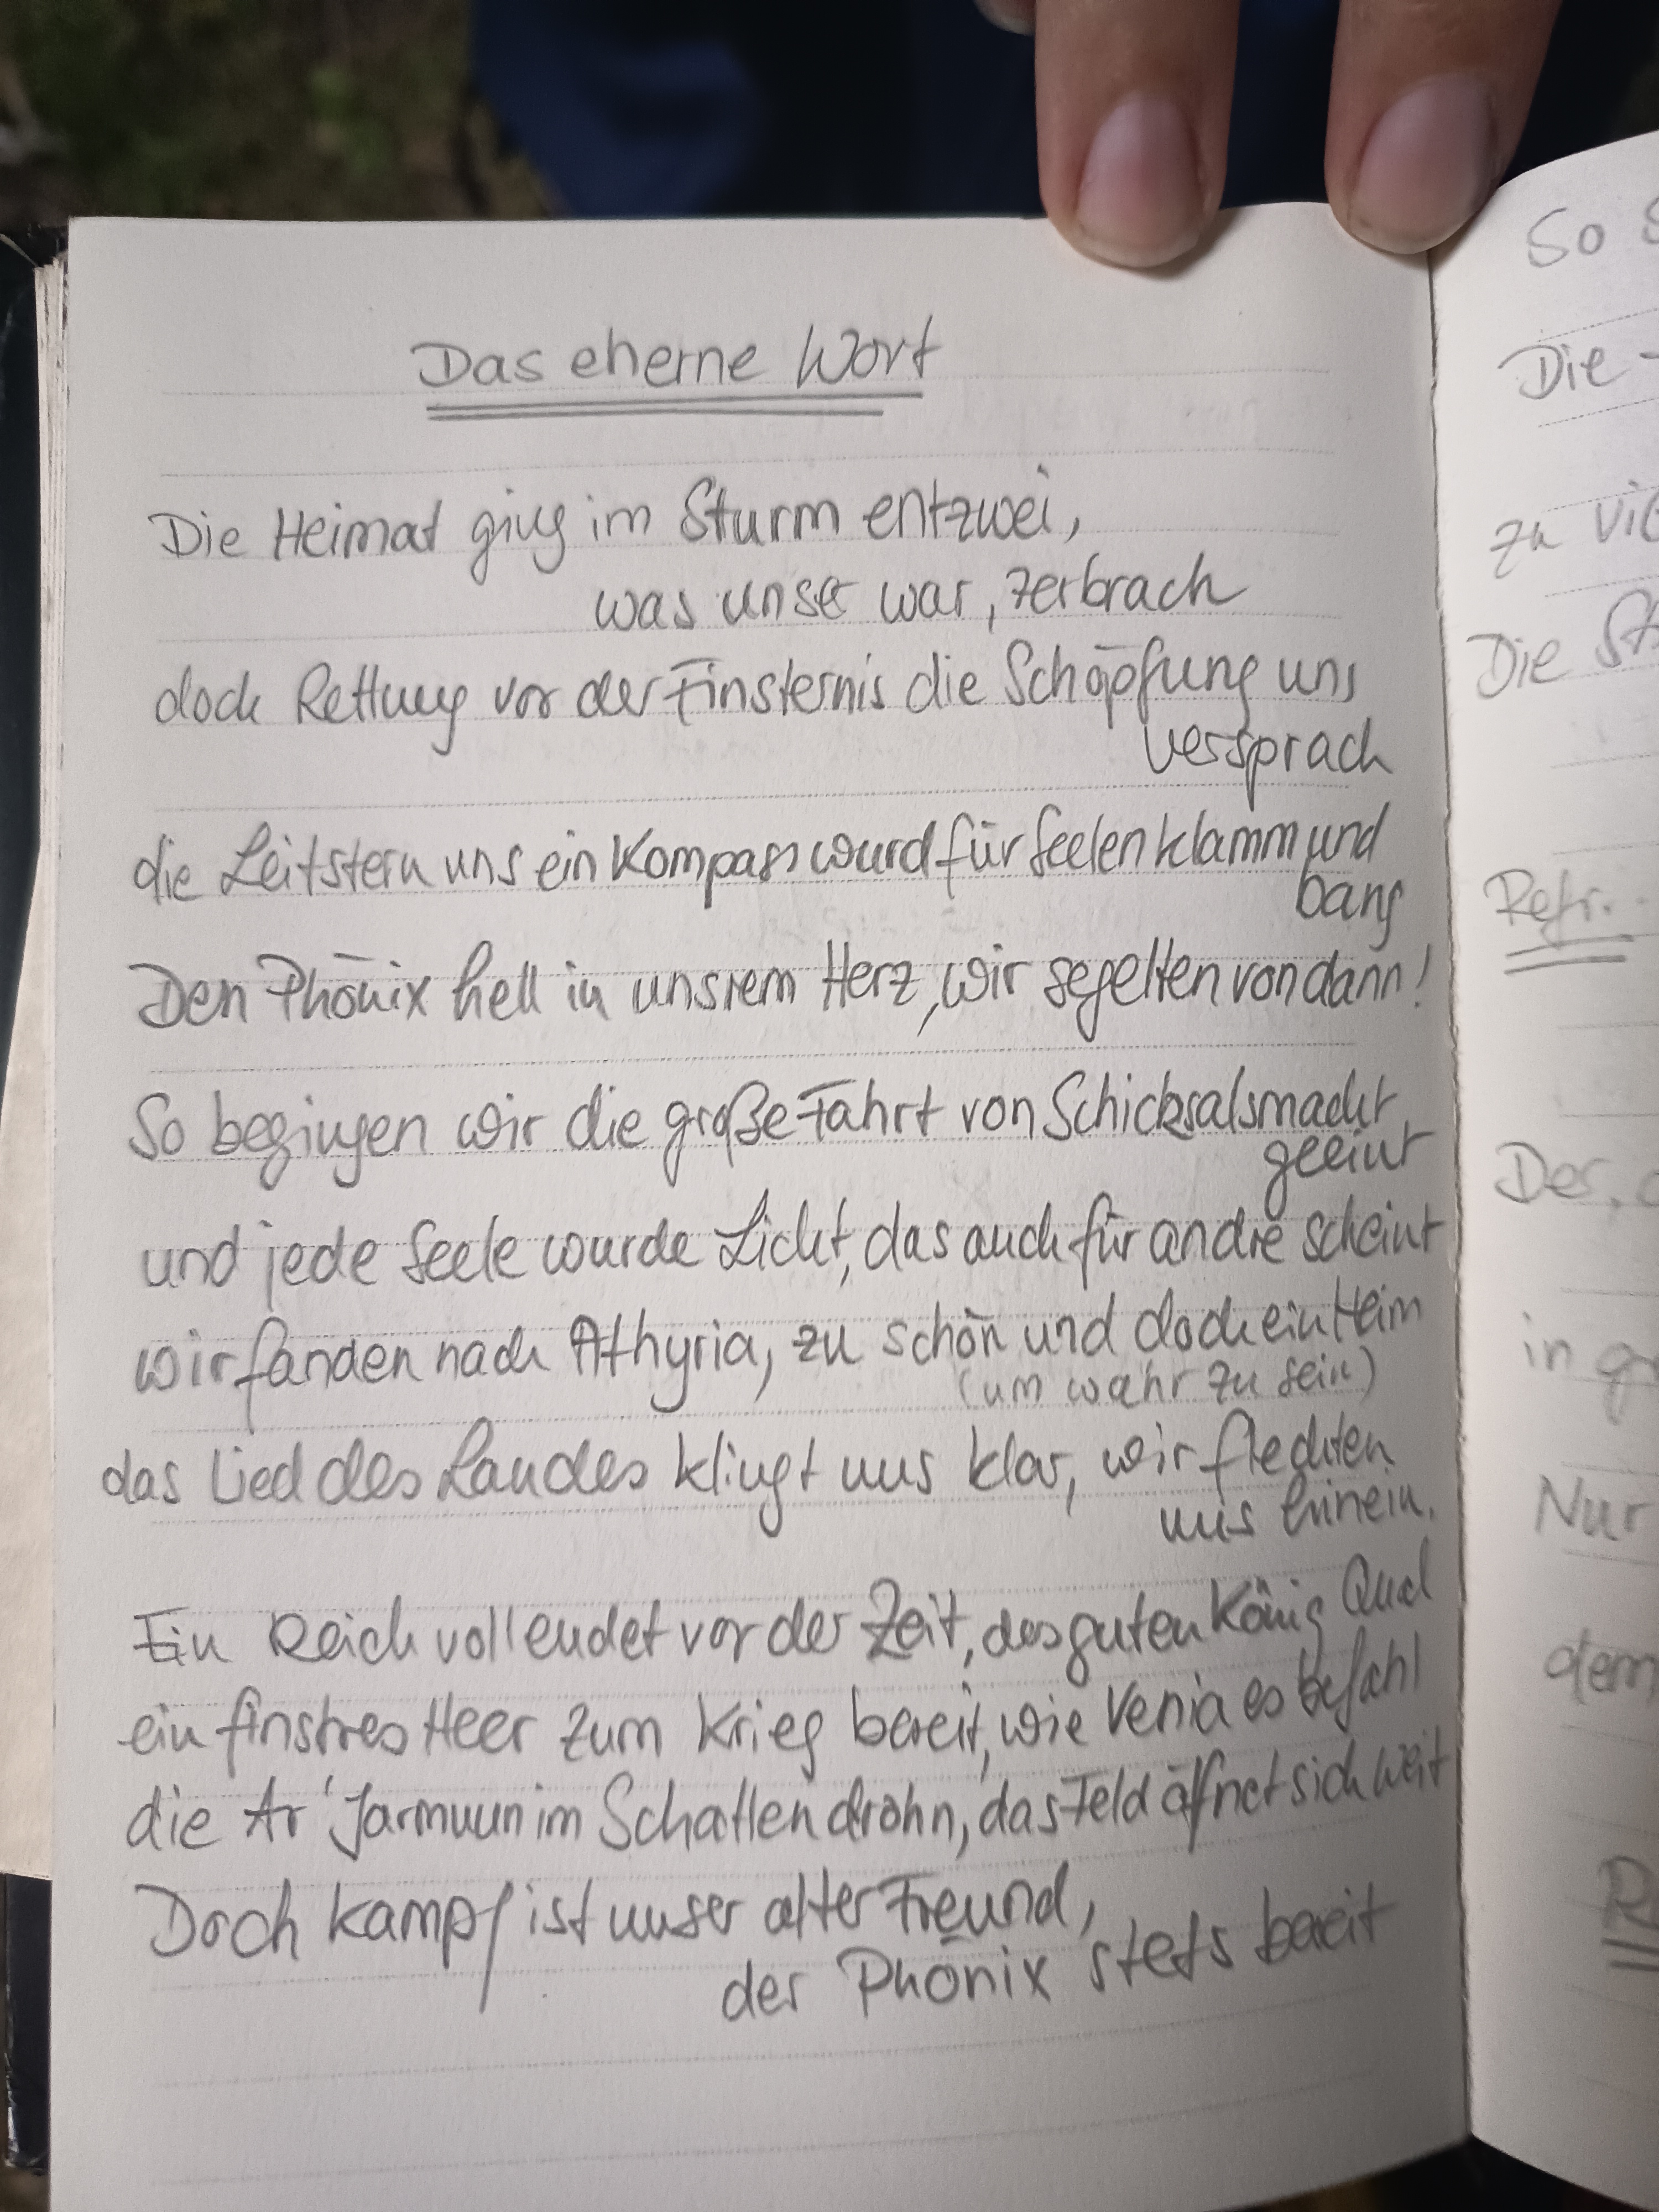 Das eherne Wort
Die Heimat ging im Sturm entzwei,
was unser war, zerbrach
doch Rettung vor der Finsternis die Schöpfung uns
versprach
die Leitstern uns ein Kompass wurd für Seelen klamm und
bang
Den Phönix hell in unsrem Herz, wir segelten von dann!
So begingen wir die große Fahrt von Schicksalsmacht
geeint
und jede Seele wurde Licht, das auch für andre scheint
wir fanden nach Athyria, zu schön und doch ein Heim
(um wahr zu sein)
das Lied des Landes klingt uns klar, wir flechten
uns hinein.
Ein Reich vollendet vor der Zeit, des guten König Qual
ein finstres Heer zum Krieg bereit, wie Venia es befahl
die Ar'Jarmuun im Schatten drohn, das Feld öffnet sich weit
Doch Kampf ist unser alter Freund,
der Phönix stets bereit
So
Die
zu
Die
Refr.
Der
in
Nur
dem